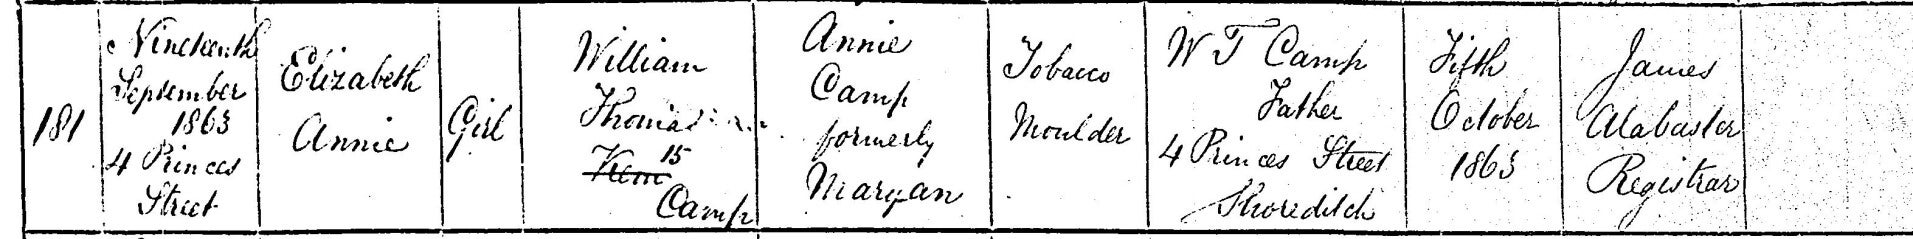 181
Nineteenth
September
1863
4 Princes
Street
Elizabeth
Annie
Girl
William
Thomas
15
Camp
Annie
Camp
formerly
Margan
Tobacco
Moulder
W T Camp
Father
4 Princes Street
Shoreditch
Fifth
October
1863
James
Alabaster
Registrar